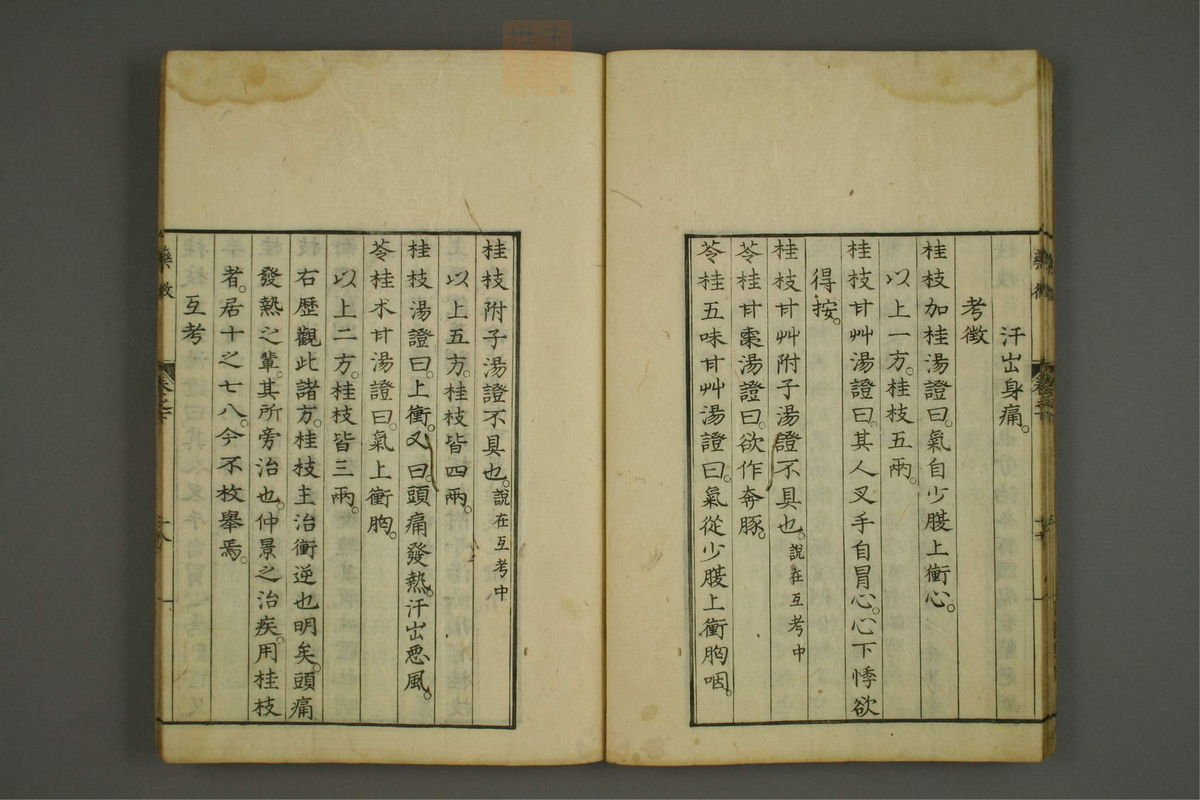 汗出身痛。
考徵
桂枝加桂湯證曰。氣自少腹上衝心。
以上一方。桂枝五兩。
桂枝甘艸湯證曰。其人叉手自冒心。心下悸欲
得按。
桂枝甘艸附子湯證不具也。說在互考中
苓桂甘棗湯證曰。欲作奔豚。
苓桂五味甘艸湯證曰。氣從少腹上衝胸咽。
桂枝附子湯證不具也。說在互考中
以上五方。桂枝皆四兩。
桂枝湯證曰。上衝。又曰。頭痛發熱。汗出惡風。
苓桂朮甘湯證曰。氣上衝胸。
以上二方。桂枝皆三兩。
右歷觀此諸方。桂枝主治衝逆也明矣。頭痛
發熱之輩。其所旁治也。仲景之治疾。用桂枝
者。居十之七八。今不枚舉焉。
互考
藥徵